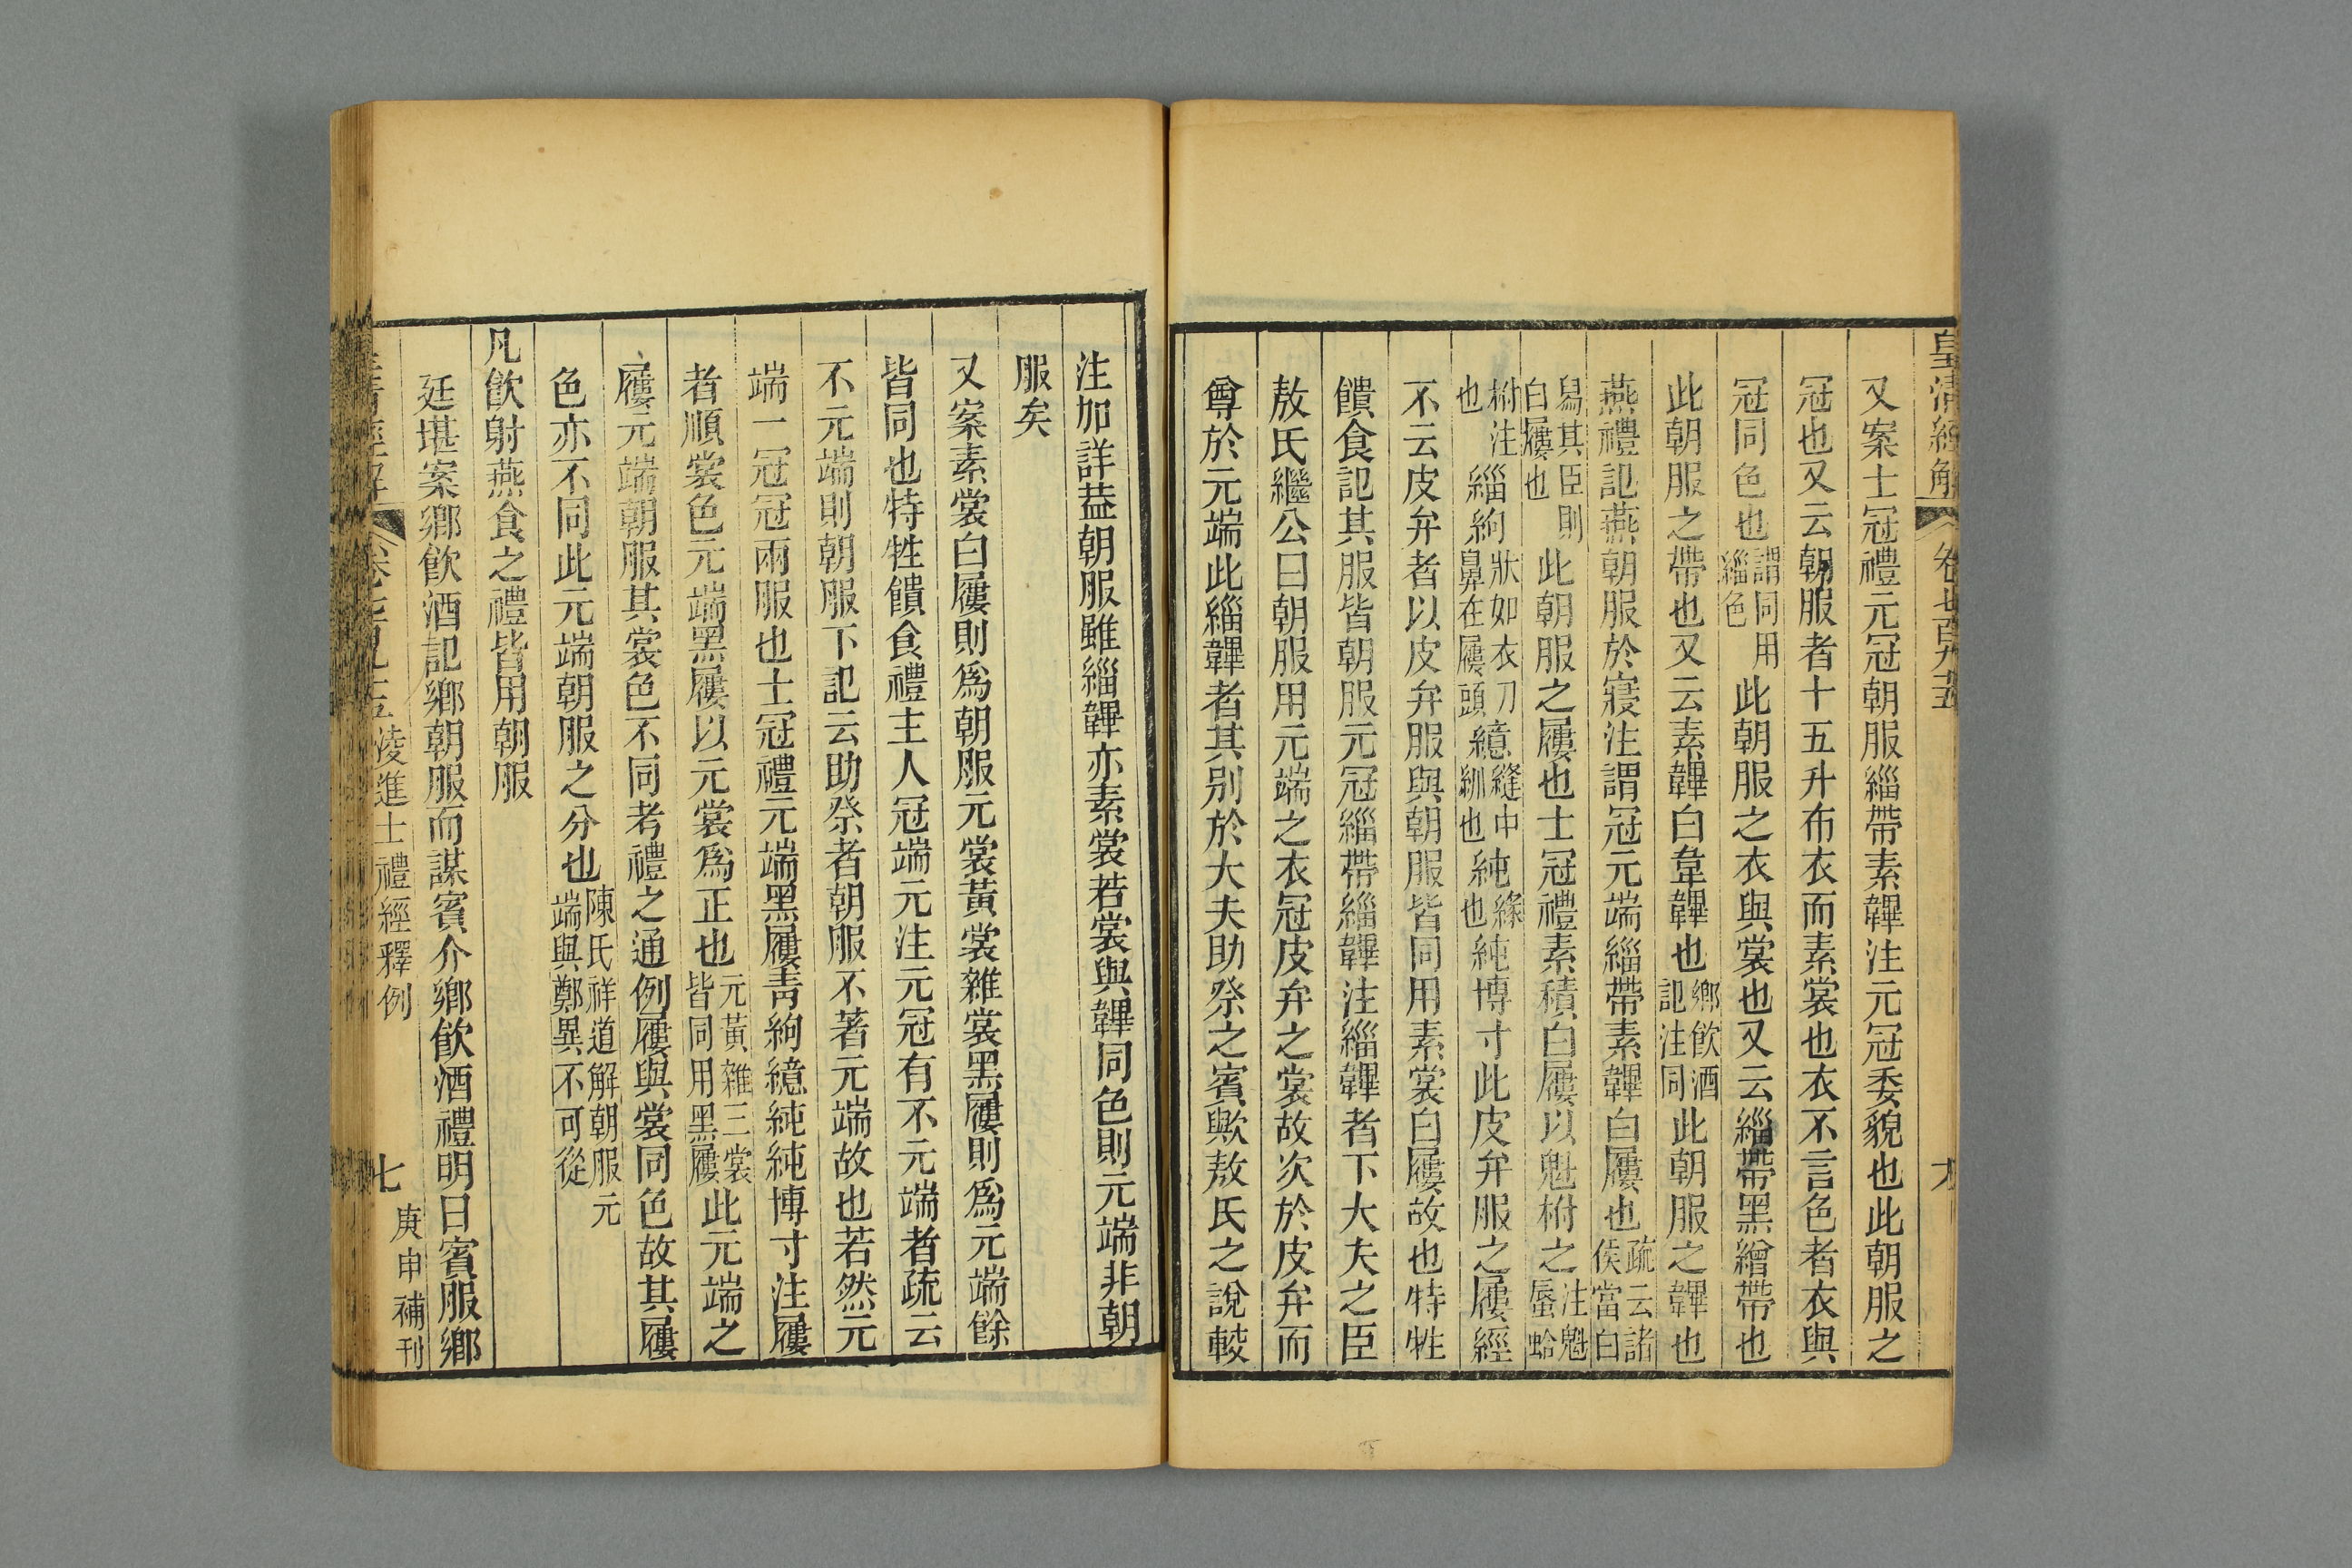 皇清經解 卷七百九十五
又案士冠禮元冠朝服緇帶素韠注元冠委貌也此朝服之
冠也又云朝服者十五升布衣而素裳也衣不言色者衣與
冠同色也謂同用緇色此朝服之衣與裳也又云緇帶黑繒帶也
此朝服之帶也又云素韠白韋韠也鄉飲酒記注同此朝服之韠也
燕禮記燕朝服於寢注謂冠元端緇帶素韠白屨也疏云諸侯當白
舄其臣則白屨也此朝服之屨也士冠禮素積白屨以魁柎之注魁蜃蛤
柎注也緇絇狀如衣刀鼻在屨頭繶縫中紃也純緣也純博寸此皮弁服之屨經
不云皮弁者以皮弁服與朝服皆同用素裳白屨故也特牲
饋食記其服皆朝服元冠緇帶緇韠注緇韠者下大夫之臣
敖氏繼公曰朝服用元端之衣冠皮弁之裳故次於皮弁而
尊於元端此緇韠者其別於大夫助祭之賓歟敖氏之說較
注加詳葢朝服雖緇韠亦素裳若裳與韠同色則元端非朝
服矣
又案素裳白屨則爲朝服元裳黃裳雜裳黑屨則爲元端餘
皆同也特牲饋食禮主人冠端元注元冠有不元端者疏云
不元端則朝服下記云助祭者朝服不著元端故也若然元
端一冠冠兩服也士冠禮元端黑屨靑絇繶純純博寸注屨
者順裳色元端黑屨以元裳爲正也元黃雜三裳皆同用黑屨此元端之
屨元端朝服其裳色不同考禮之通例屨與裳同色故其屨
色亦不同此元端朝服之分也陳氏祥道解朝服元端與鄭異不可從
凡飮射燕食之禮皆用朝服
廷堪案鄉飮酒記鄉朝服而謀賓介鄉飮酒禮明日賓服鄉
皇清經解 卷七百九十五 淩進士禮經釋例 七 庚申補刊